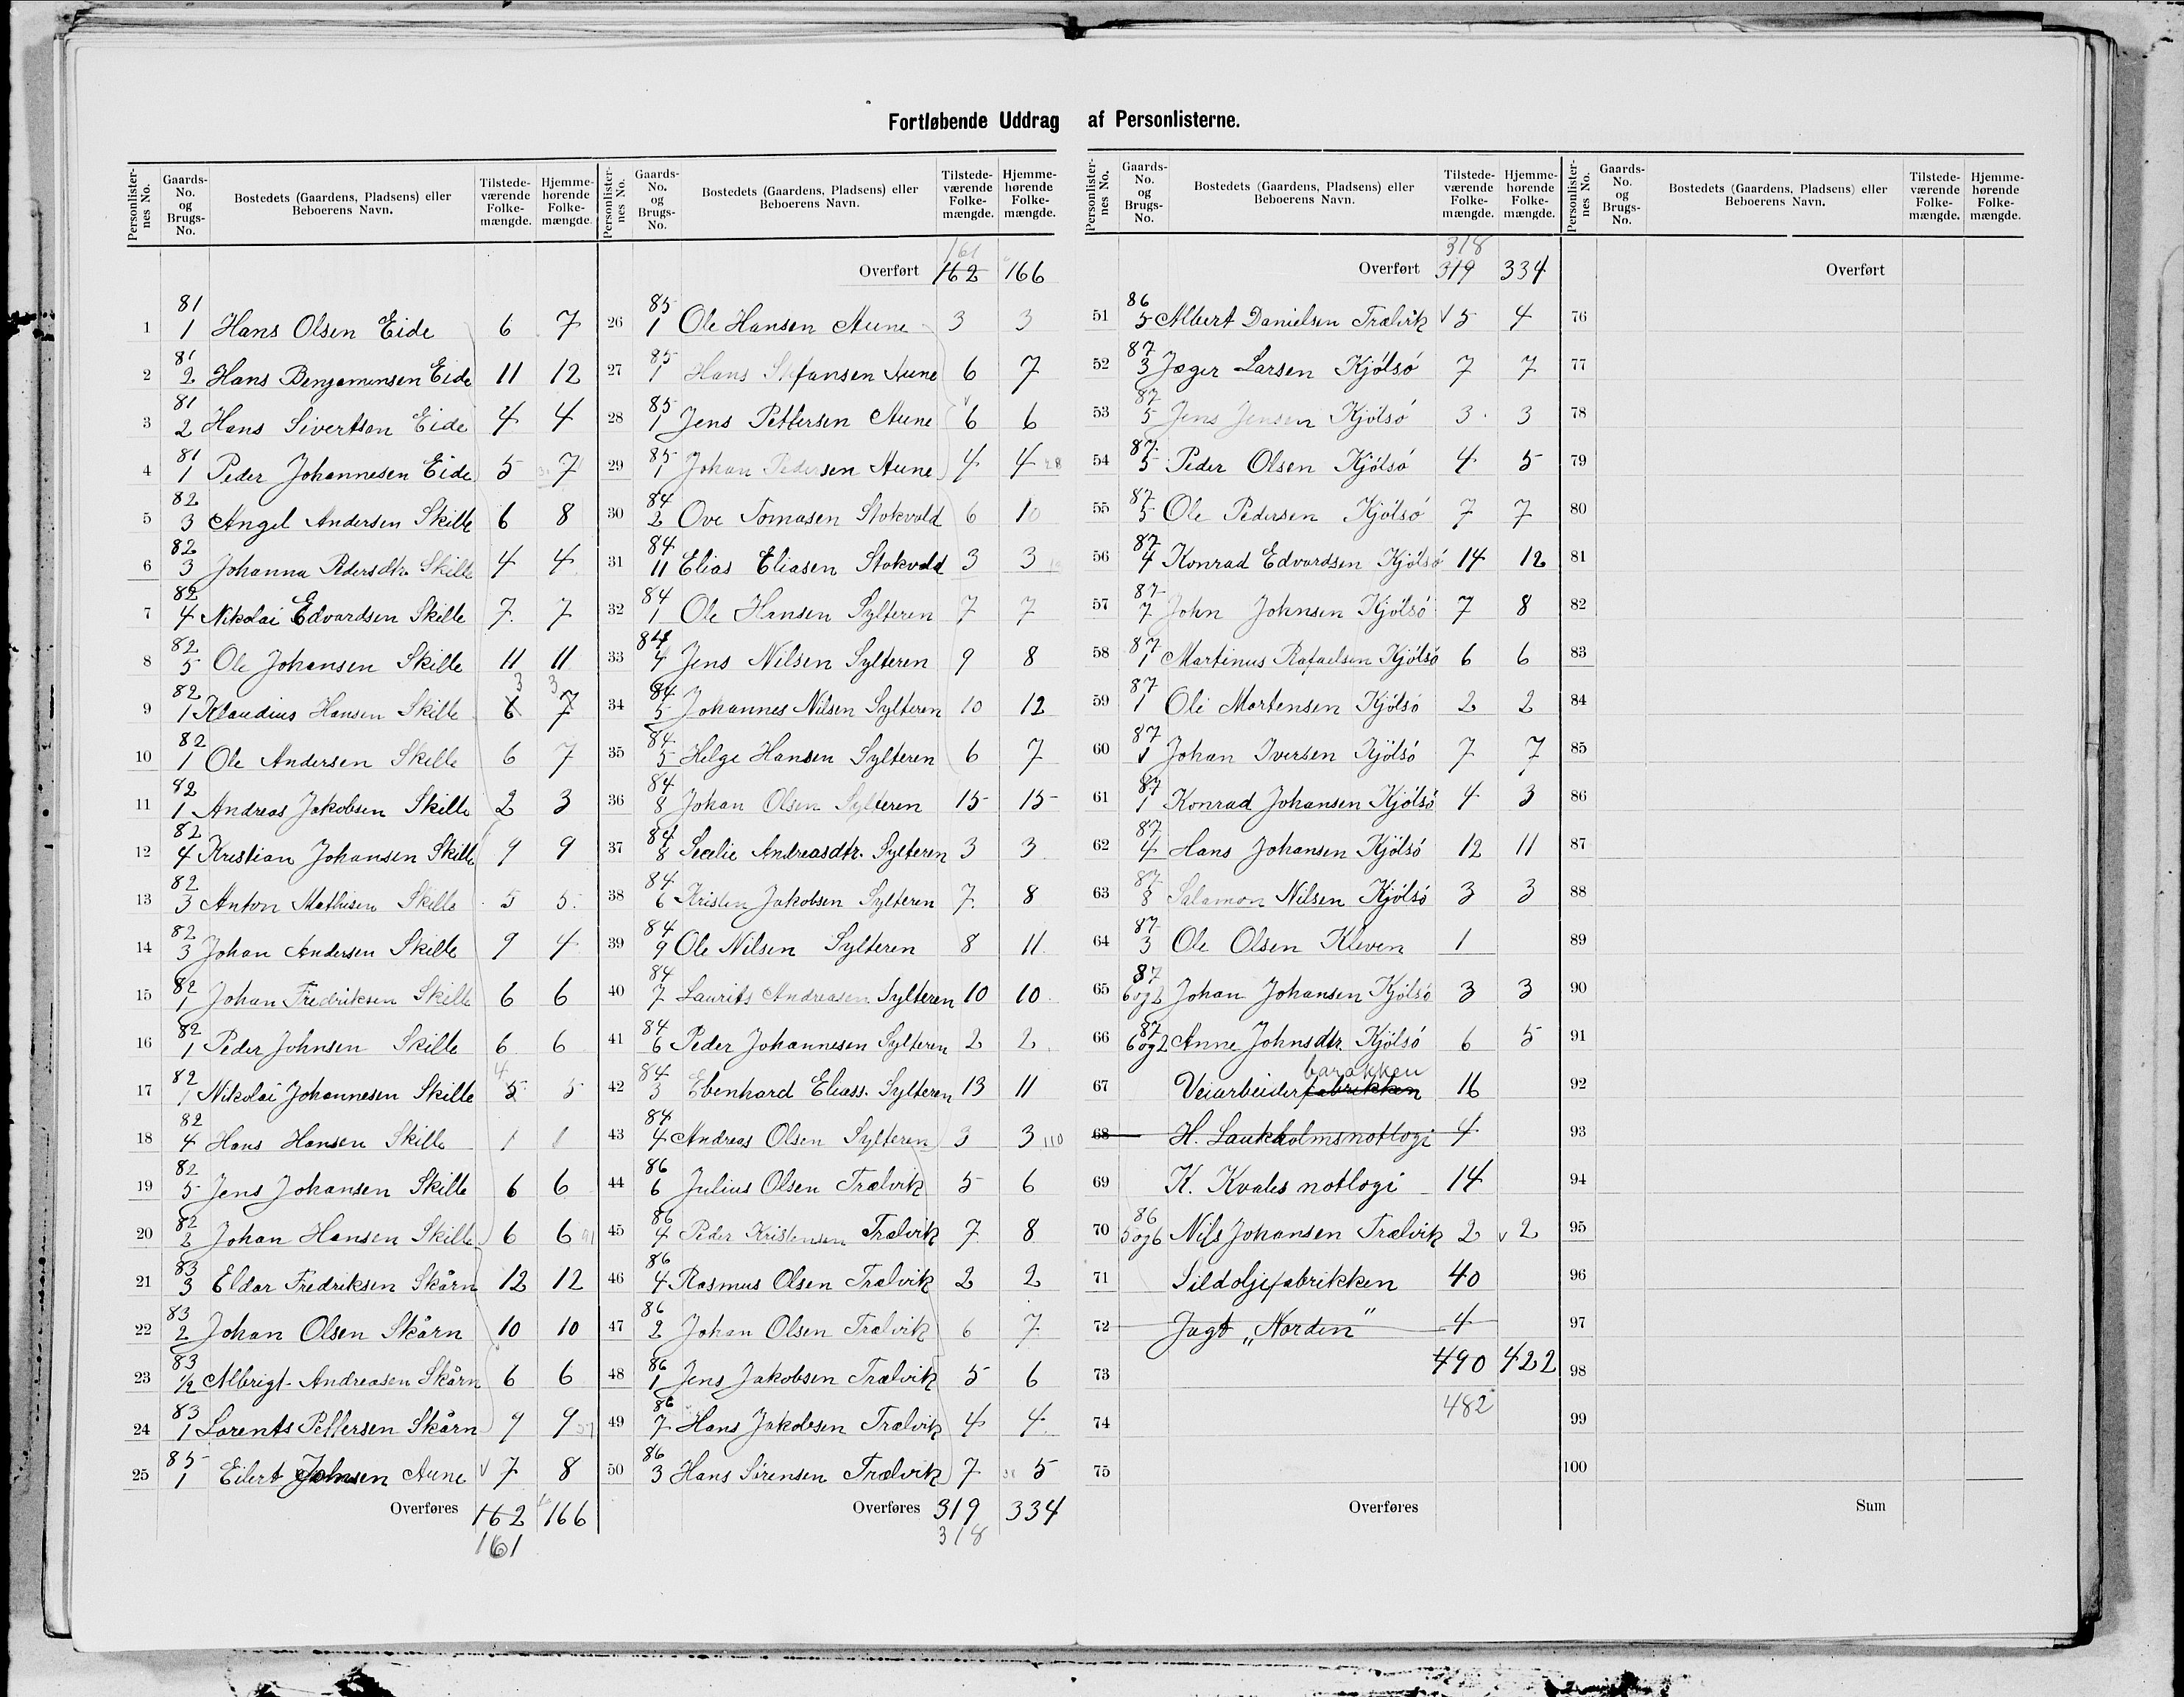 Fortløbende Uddrag af Personlisterne.
Personlisternes No. Gaards-No. og Brugs-No. Bostedets (Gaardens, Pladsens) eller Beboerens Navn. Tilstedeværende Folkemængde. Hjemmehørende Folkemængde.
1 81 1 Hans Olsen Eide 6 7
2 81 2 Hans Benjaminsen Eide 11 12
3 81 2 Hans Sivertsen Eide 4 4
4 81 1 Peder Johannesen Eide 5 7
5 82 3 Angel Andersen Skille 6 8
6 82 3 Johanna Pedersdtr. Skille 4 4
7 82 4 Nikolai Edvardsen Skille 7 7
8 82 5 Ole Johansen Skille 11 11
3 3
9 82 1 Klaudius Hansen Skille 6 7
10 82 1 Ole Andersen Skille 6 7
11 82 1 Andreas Jakobsen Skille 2 3
12 82 4 Kristian Johansen Skille 9 9
13 82 3 Anton Mathisen Skille 5 5
14 82 3 Johan Andersen Skille 9 4
15 82 1 Johan Fredriksen Skille 6 6
16 82 1 Peder Johnsen Skille 6 6
4
17 82 1 Nikolai Johannesen Skille 5 5
18 82 4 Hans Hansen Skille 1 1
19 82 5 Jens Johansen Skille 6 6
20 82 2 Johan Hansen Skille 6 6 91
21 83 3 Eldar Fredriksen Skårn 12 12
22 83 2 Johan Olsen Skårn 10 10
23 83 1/2 Albrigt Andreasen Skårn 6 6
24 83 1 Lorents Pettersen Skårn 9 9
25 85 1 Eilert Johnsen Aune 7 8
Overføres 162 166
161
Personlisternes No. Gaards-No. og Brugs-No. Bostedets (Gaardens, Pladsens) eller Beboerens Navn. Tilstedeværende Folkemængde. Hjemmehørende Folkemængde.
161
Overført 162 166
26 85 1 Ole Hansen Aune 3 3
27 85 1 Hans Stefansen Aune 6 7
28 85 1 Jens Pettersen Aune 6 6
29 85 1 Johan Pedersen Aune 4 4 28
30 84 2 Ove Tomasen Stokvold 6 10
31 84 11 Elias Eliasen Stokvold 3 3
32 84 1 Ole Hansen Sylteren 7 7
33 84 4 Jens Nilsen Sylteren 9 8
34 84 5 Johannes Nilsen Sylteren 10 12
35 84 5 Helge Hansen Sylteren 6 7
36 84 8 Johan Olsen Sylteren 15 15
37 84 8 Secelie Andreasdtr. Sylteren 3 3
38 84 6 Kristen Jakobsen Sylteren 7 8
39 84 9 Ole Nilsen Sylteren 8 11
40 84 7 Laurits Andreasen Sylteren 10 10
41 84 6 Peder Johannesen Sylteren 2 2
42 84 3 Ebenhard Eliass. Sylteren 13 11
43 84 4 Andreas Olsen Sylteren 3 3 110
44 86 6 Julius Olsen Trælvik 5 6
45 86 4 Peder Kristensen Trælvik 7 8
46 86 4 Rasmus Olsen Trælvik 2 2
47 86 2 Johan Olsen Trælvik 6 7
48 86 1 Jens Jakobsen Trælvik 5 6
49 86 7 Hans Jakobsen Trælvik 4 4
50 86 3 Hans Sørensen Trælvik 7 5
Overføres 319 334
318
Personlisternes No. Gaards-No. og Brugs-No. Bostedets (Gaardens, Pladsens) eller Beboerens Navn. Tilstedeværende Folkemængde. Hjemmehørende Folkemængde.
318
Overført 319 334
51 86 5 Albert Danielsen Trælvik 5 4
52 87 3 Jæger Larsen Kjølsø 7 7
53 87 5 Jens Jensen Kjølsø 3 3
54 87 5 Peder Olsen Kjølsø 4 5
55 87 5 Ole Pedersen Kjølsø 7 7
56 87 4 Konrad Edvardsen Kjølsø 14 12
57 87 7 John Johnsen Kjølsø 7 8
58 87 1 Martinus Rafaelsen Kjølsø 6 6
59 87 1 Ole Mortensen Kjølsø 2 2
60 87 1 Johan Iversen Kjølsø 7 7
61 87 1 Konrad Johansen Kjølsø 4 3
62 87 4 Hans Johansen Kjølsø 12 11
63 87 8 Salamon Nilsen Kjølsø 3 3
64 87 3 Ole Olsen Kleven 1
65 87 6 og 2 Johan Johansen Kjølsø 3 3
66 87 6 og 2 Anne Johnsdtr. Kjølsø 6 5
barakken
67 Veiarbeiderfabrikken 16
68 H. Laukholmsnotlogi 4
69 K. Kvales notlogi 14
70 86 5 og 6 Nils Johansen Trælvik 2 2
71 Sildoljefabrikken 40
72 Jagt "Norden" 4
73 490 422
74 482
75
Overføres
Personlisternes No. Gaards-No. og Brugs-No. Bostedets (Gaardens, Pladsens) eller Beboerens Navn. Tilstedeværende Folkemængde. Hjemmehørende Folkemængde.
Overført
76
77
78
79
80
81
82
83
84
85
86
87
88
89
90
91
92
93
94
95
96
97
98
99
100
Sum